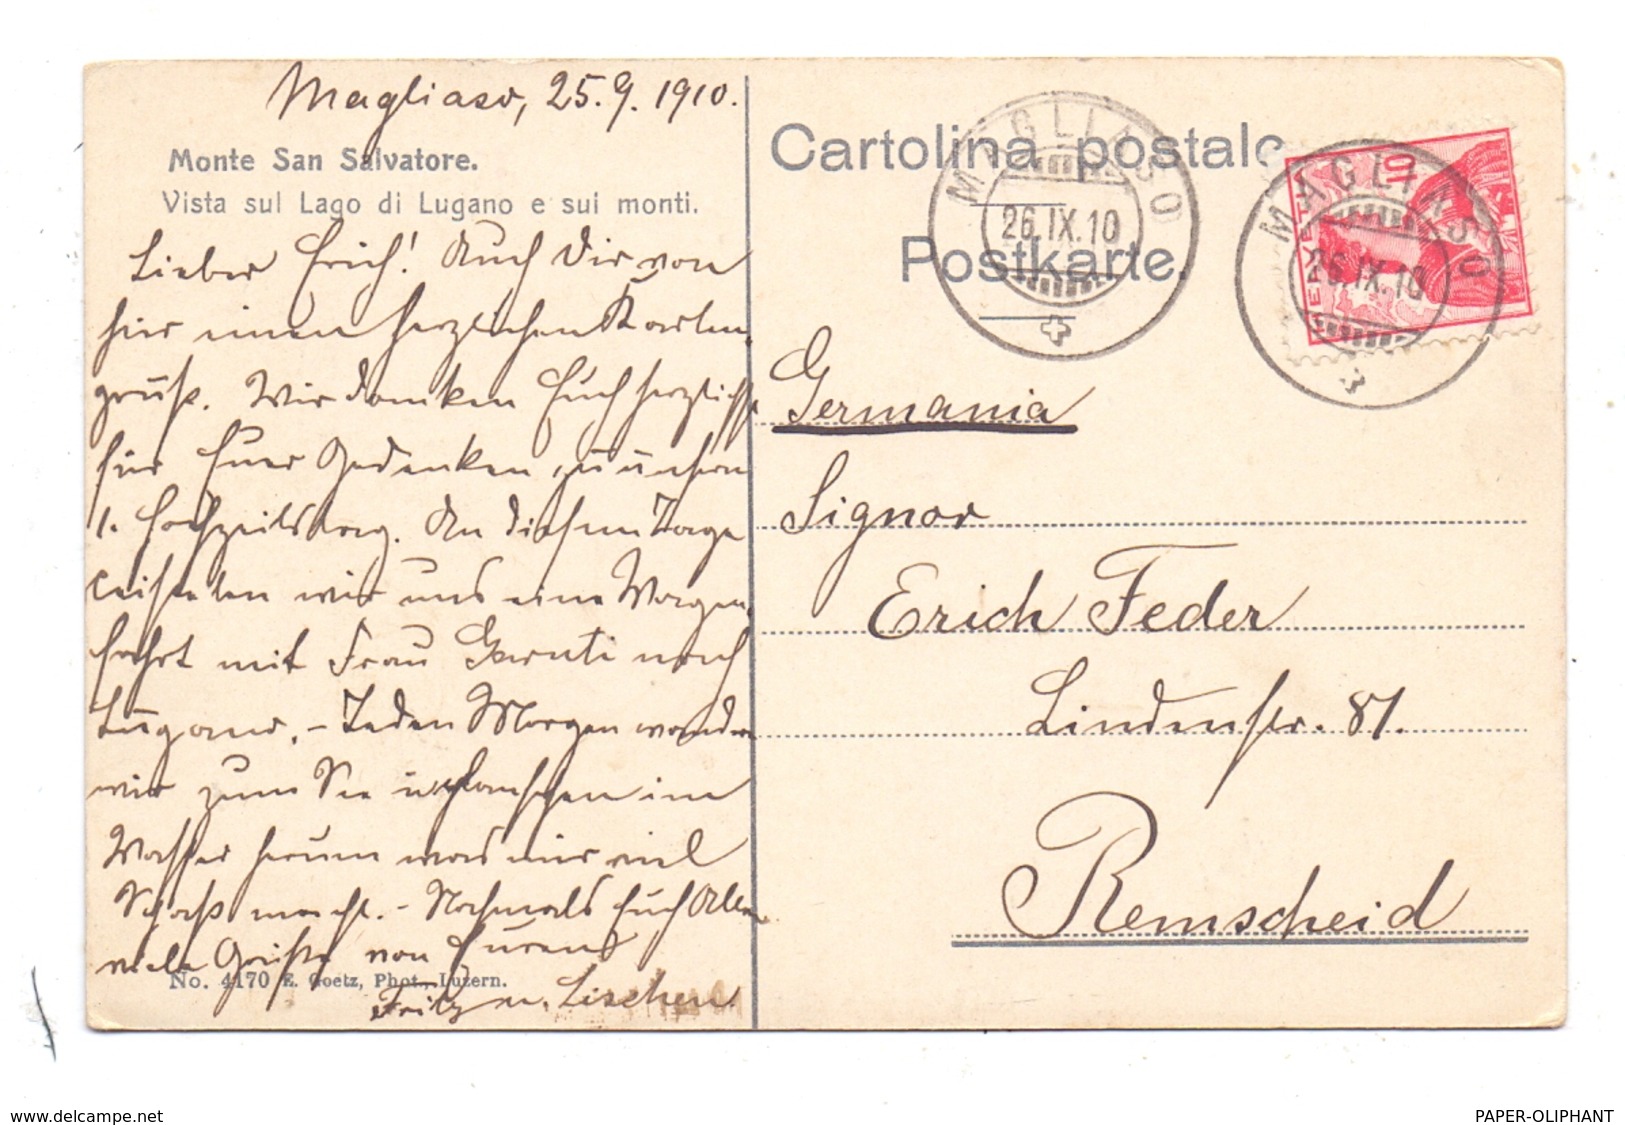 Magliaso, 25.9.1910.
Monte San Salvatore.
Vista sul Lago di Lugano e sui monti.
Lieber Erich! Auch Dir von
hier einen herzlichen Karten-
gruß. Wir danken Euch herzlichst
für Euer Gedenken zu unserm
1. Hochzeitstag. An diesem Tage
leisteten wir uns eine Wagen-
fahrt mit Frau Garnti nach
Lugano. – Jeden Morgen wandern
wir zum See u. planschen im
Wasser herum was mir viel
Spaß macht. – Nochmals Euch Allen
viele Grüße von Euren
Fritz u. Lischen.
No. 4170 E. Goetz, Phot., Luzern.
Cartolina postale
Postkarte.
MAGLIASO
26.IX.10
MAGLIASO
26.IX.10
10
HELVETIA
Germania
Signor
Erich Feder
Lindenstr. 81.
Remscheid
www.delcampe.net
PAPER-OLIPHANT